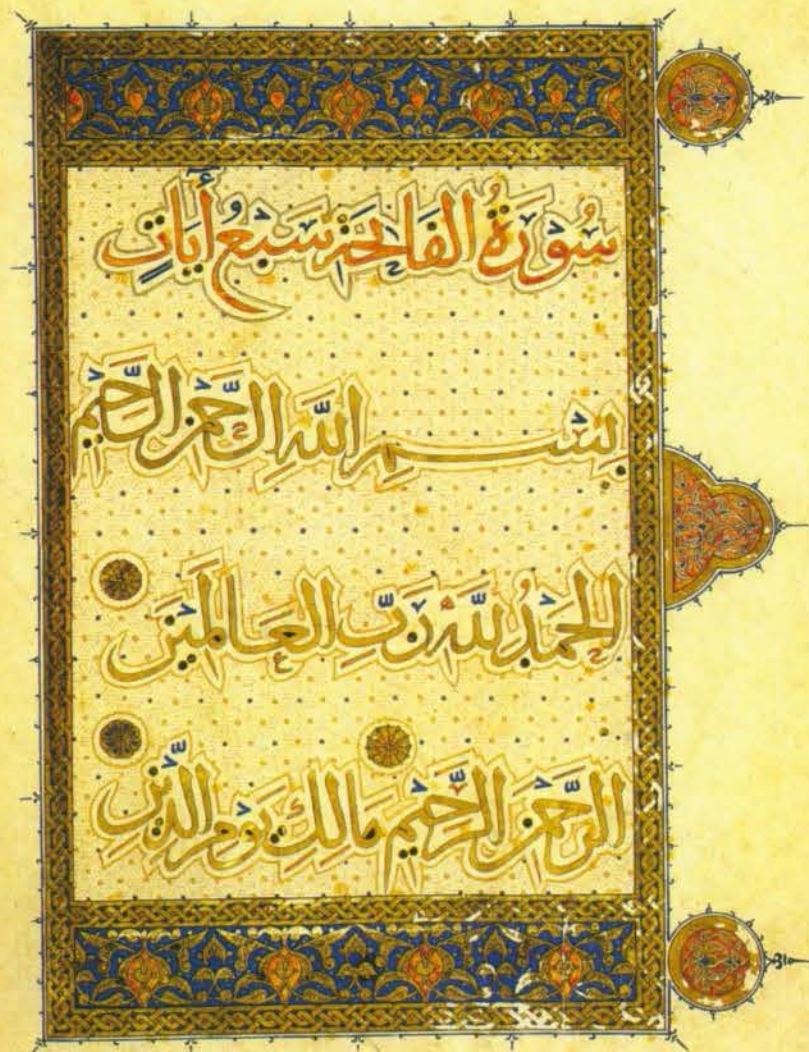 سُورَةُ الفَاتِحَةِ سَبْعُ أَيَاتٍ
بِسْمِ اللَّهِ الرَّحْمَنِ الرَّحِيمِ
الْحَمْدُ لِلَّهِ رَبِّ الْعَالَمِينَ
الرَّحْمَنِ الرَّحِيمِ مَالِكِ يَوْمِ الدِّينِ